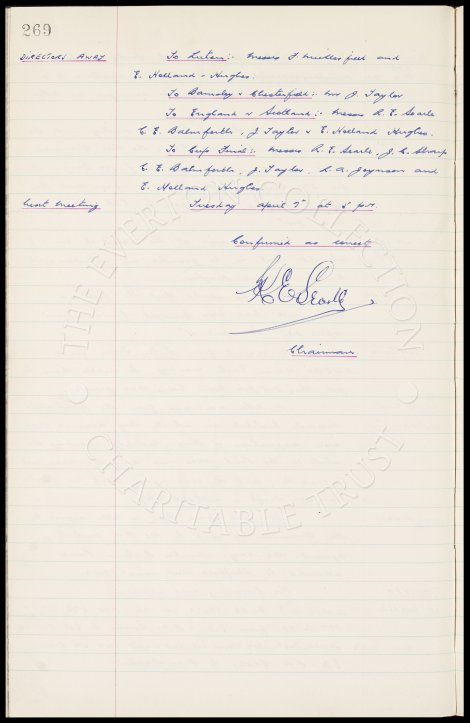 269
DIRECTORS AWAY To Luton:- Messrs F Micklesfield and
E. Holland-Hughes.
To Barnsley & Chesterfield:- Mr J. Taylor
To England v Scotland:- Messrs R. E. Searle
C. E. Balmforth, J. Taylor & E. Holland Hughes.
To Cup Final:- Messrs R. E. Searle, J. C. Sharp
C. E. Balmforth, J. Taylor, R. A. Joynson and
E. Holland Hughes
Next Meeting Tuesday April 7th at 5 pm
Confirmed as correct
R E Searle
Chairman
THE EVERTON COLLECTION
CHARITABLE TRUST